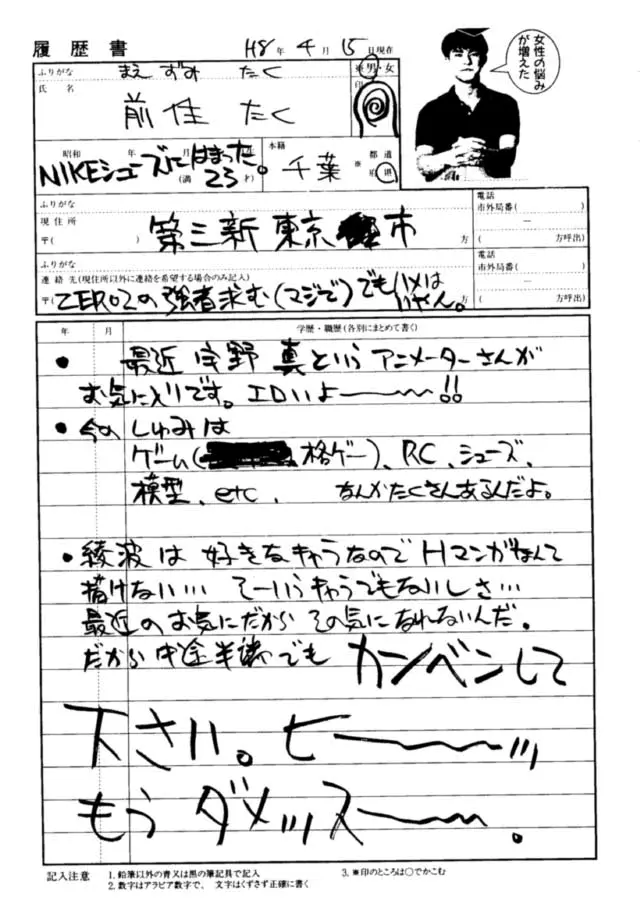 履歴書 H8年 4月 15日現在
女性の悩みが増えた
ふりがな まえ ずみ たく ※男・女
氏名 前住 たく 印
昭和 年 月
NIKEシューズにはまった。
(満 23才)
本籍 千葉 ※都道府県
ふりがな 電話
市外局番( )
現住所 第三新東京市
〒( ) 方 ( 方呼出)
ふりがな 電話
連絡先(現住所以外に連絡を希望する場合のみ記入) 市外局番( )
〒(ZERO2の強者求む(マジで)でもハメはいやん。 方 ( 方呼出)
年 月 学歴・職歴(各別にまとめて書く)
• 最近 宇野 真というアニメーターさんが
お気に入りです。エロいよ〜〜!!
• 今の しゅみは
ゲーム( 格ゲー)、RC、シューズ、
模型、etc. なんかたくさんあるんだよ。
• 綾波は 好きなきゃうなので Hマンガなんて
描けない… そーいうきゃうでもないしさ…
最近のお気にだから その気になれないんだ。
だから中途半端でも カンベンして
下さい。ヒー〜〜ッ
もうダメッス〜〜。
記入注意 1.鉛筆以外の青又は黒の筆記具で記入 3.※印のところは○でかこむ
2.数字はアラビア数字で、文字はくずさず正確に書く